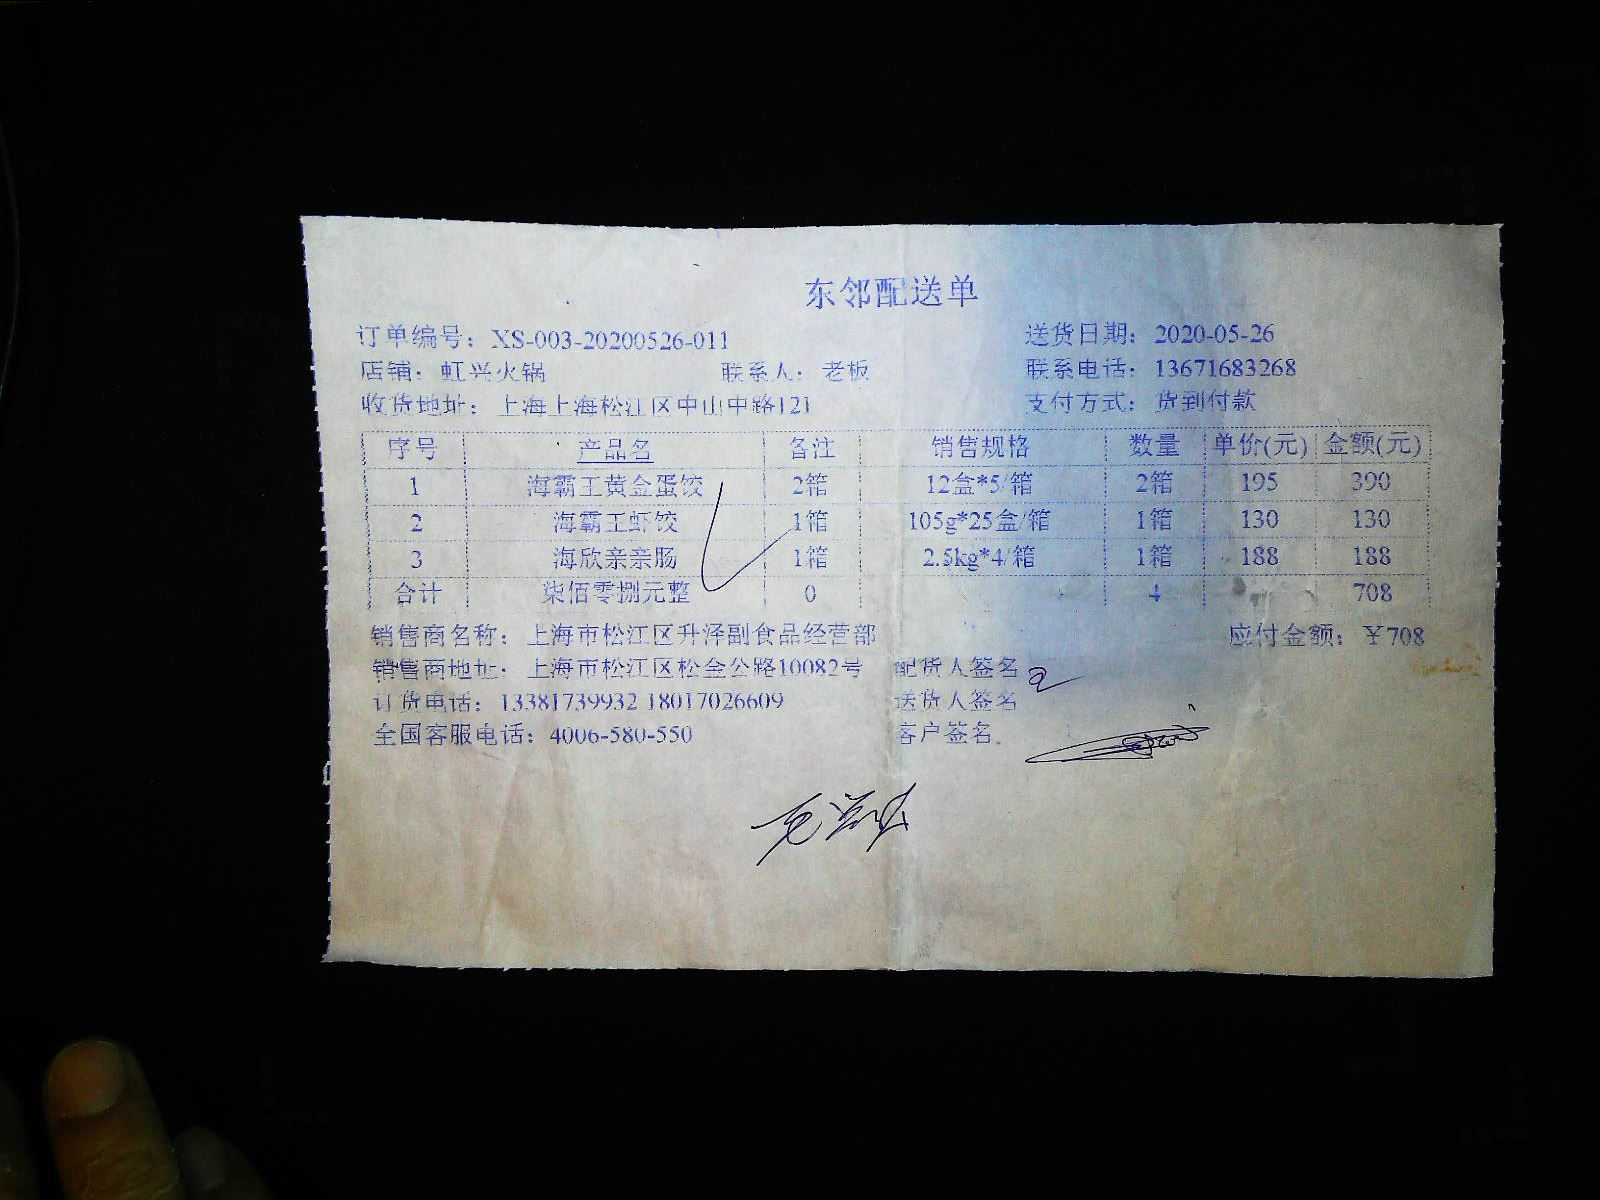 东邻配送单
订单编号：XS-003-20200526-011 送货日期：2020-05-26
店铺：虹兴火锅 联系人：老板 联系电话：13671683268
收货地址：上海上海松江区中山中路121 支付方式：货到付款
序号 产品名 备注 销售规格 数量 单价(元) 金额(元)
1 海霸王黄金蛋饺 2箱 12盒*5/箱 2箱 195 390
2 海霸王虾饺 1箱 105g*25盒/箱 1箱 130 130
3 海欣亲亲肠 1箱 2.5kg*4/箱 1箱 188 188
合计 柒佰零捌元整 0 4 708
销售商名称：上海市松江区升泽副食品经营部 应付金额：￥708
销售商地址：上海市松江区松金公路10082号 配货人签名
订货电话：13381739932 18017026609 送货人签名
全国客服电话：4006-580-550 客户签名